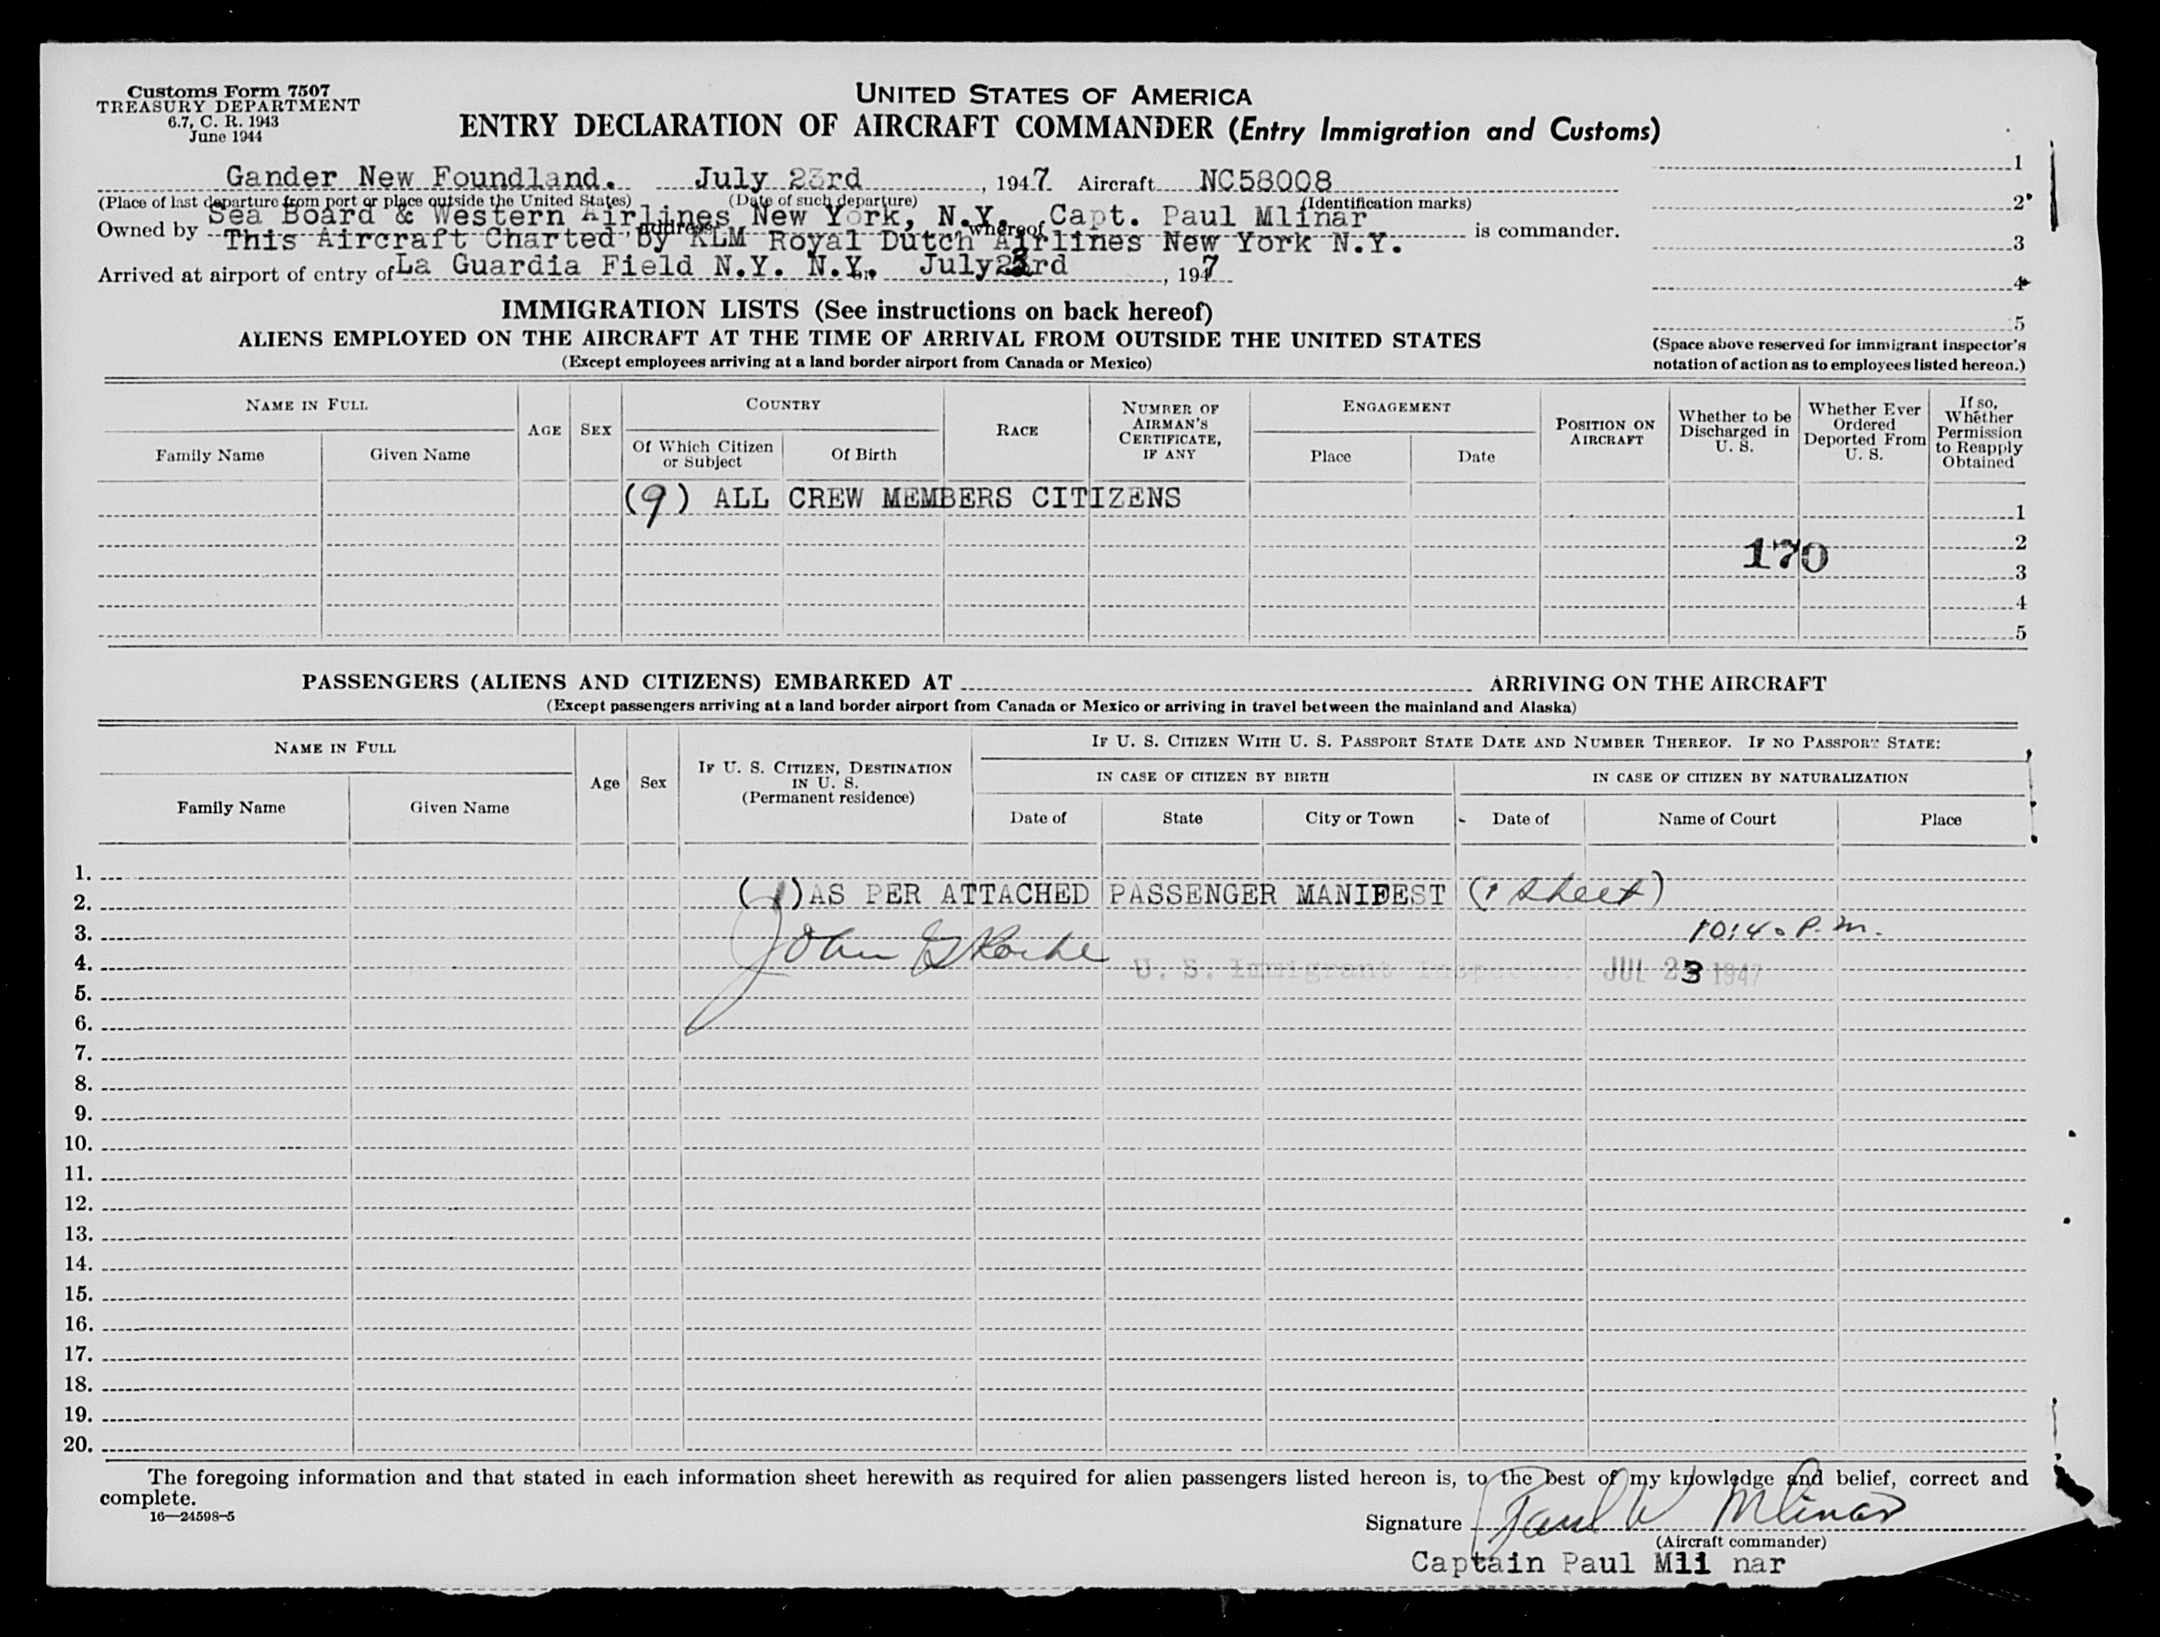 Customs Form 7507
TREASURY DEPARTMENT
6.7, C. R. 1943
June 1944
UNITED STATES OF AMERICA
ENTRY DECLARATION OF AIRCRAFT COMMANDER (Entry Immigration and Customs)
Gander New Foundland. July 23rd, 1947 Aircraft NC58008
(Place of last departure from port or place outside the United States) (Date of such departure) (Identification marks)
Owned by Sea Board & Western Airlines New York, N.Y. Capt. Paul Mlinar
address whereof is commander.
This Aircraft Charted by KLM Royal Dutch Airlines New York N.Y.
Arrived at airport of entry of La Guardia Field N.Y. N.Y. on July 23rd, 1947
1
2
3
4
5
(Space above reserved for immigrant inspector's
notation of action as to employees listed hereon.)
IMMIGRATION LISTS (See instructions on back hereof)
ALIENS EMPLOYED ON THE AIRCRAFT AT THE TIME OF ARRIVAL FROM OUTSIDE THE UNITED STATES
(Except employees arriving at a land border airport from Canada or Mexico)
NAME IN FULL
Family Name
Given Name
AGE
SEX
COUNTRY
Of Which Citizen
or Subject
Of Birth
RACE
NUMBER OF
AIRMAN'S
CERTIFICATE,
IF ANY
ENGAGEMENT
Place
Date
POSITION ON
AIRCRAFT
Whether to be
Discharged in
U. S.
Whether Ever
Ordered
Deported From
U. S.
If so,
Whether
Permission
to Reapply
Obtained
(9) ALL CREW MEMBERS CITIZENS
1
2
170
3
4
5
PASSENGERS (ALIENS AND CITIZENS) EMBARKED AT ARRIVING ON THE AIRCRAFT
(Except passengers arriving at a land border airport from Canada or Mexico or arriving in travel between the mainland and Alaska)
NAME IN FULL
Family Name
Given Name
Age
Sex
IF U. S. CITIZEN, DESTINATION
IN U. S.
(Permanent residence)
IF U. S. CITIZEN WITH U. S. PASSPORT STATE DATE AND NUMBER THEREOF. IF NO PASSPORT STATE:
IN CASE OF CITIZEN BY BIRTH
Date of
State
City or Town
IN CASE OF CITIZEN BY NATURALIZATION
Date of
Name of Court
Place
1.
2. (1) AS PER ATTACHED PASSENGER MANIFEST (1 sheet)
3. 10:40 P.M.
4. John U. S. Immigrant Inspector JUL 23 1947
5.
6.
7.
8.
9.
10.
11.
12.
13.
14.
15.
16.
17.
18.
19.
20.
The foregoing information and that stated in each information sheet herewith as required for alien passengers listed hereon is, to the best of my knowledge and belief, correct and
complete.
16—24598-5
Signature Paul W Mlinar
(Aircraft commander)
Captain Paul Mli nar